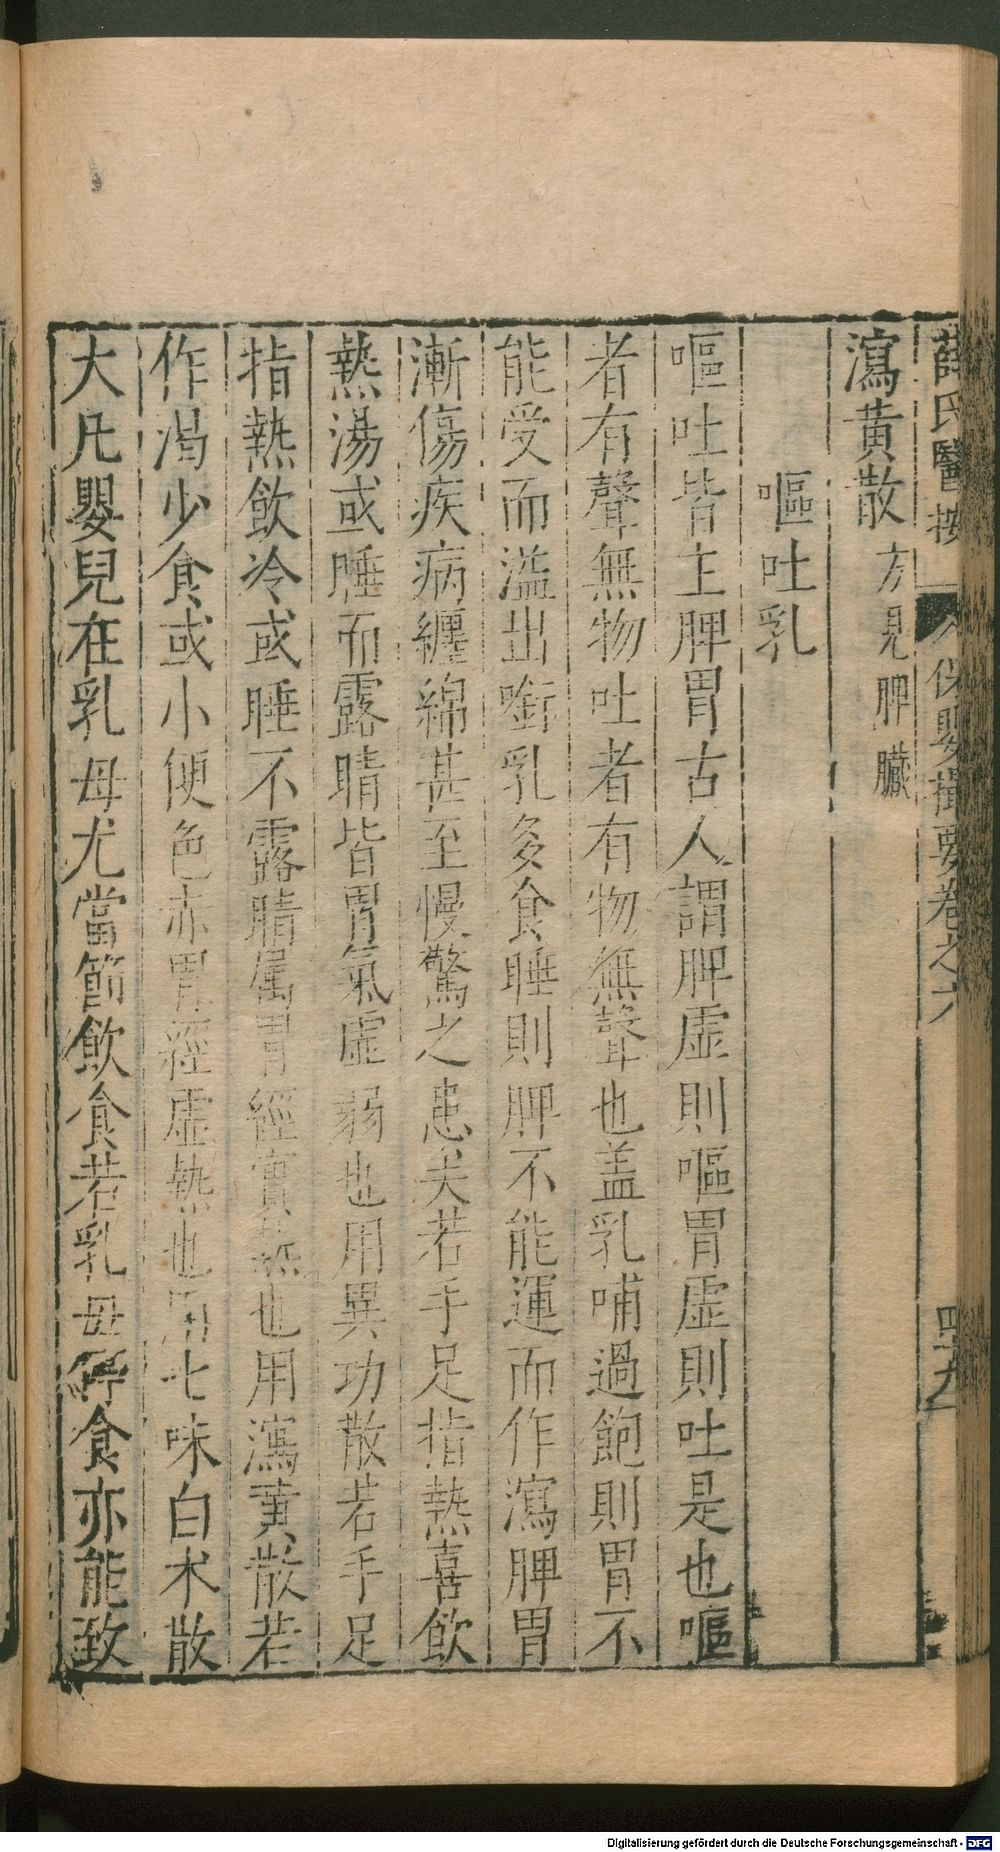 薛氏醫按 保嬰撮要卷之六 四十九
瀉黃散方見脾臟
嘔吐乳
嘔吐皆主脾胃古人謂脾虛則嘔胃虛則吐是也嘔
者有聲無物吐者有物無聲也盖乳哺過飽則胃不
能受而溢出啣乳及食睡則脾不能運而作瀉脾胃
漸傷疾病纏綿甚至慢驚之患矣若手足指熱喜飲
熱湯或睡而露睛皆胃氣虛弱也用異功散若手足
指熱飲冷或睡不露睛屬胃經實熱也用瀉黃散若
作渴少食或小便色赤胃經虛熱也用七味白朮散
大凡嬰兒在乳母尤當節飲食若乳母停食亦能致
Digitalisierung gefördert durch die Deutsche Forschungsgemeinschaft - DFG